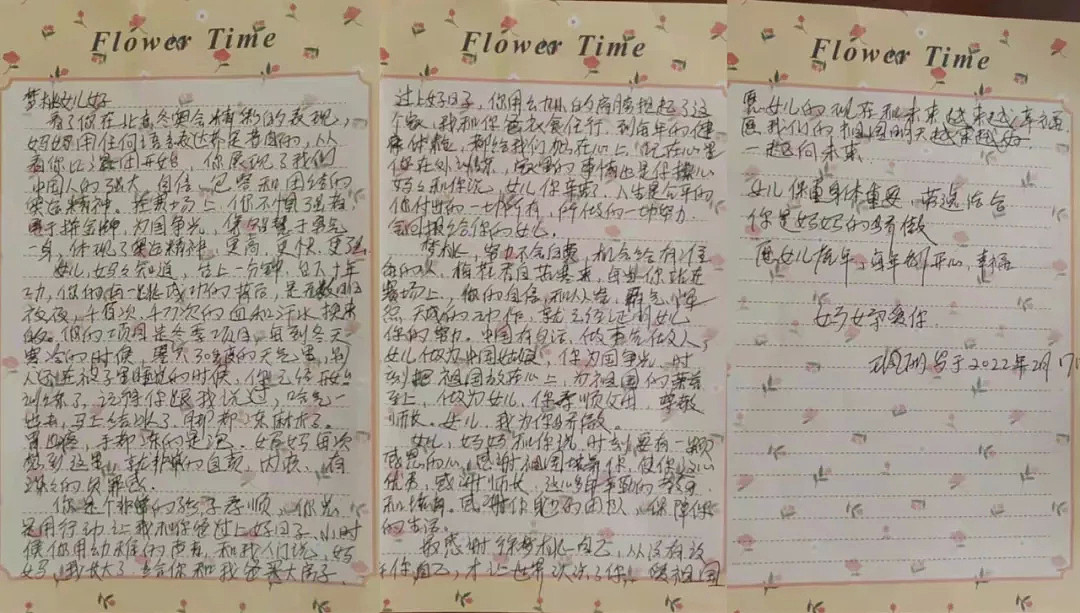 Flower Time
梦桃女儿好
看了你在北京冬奥会精彩的表现,
妈妈用任何语言表达都是苍白的,从
看你比赛开始,你展现了我们
中国人的强大 自信、包容和团结的
奥运精神。在赛场上,你不惧强者,
勇于拼金牌,为国争光,集智慧于勇气
一身,体现了奥运精神,更高,更快,更强
女儿,妈妈知道,台上一分钟,台下十年
功,你的每一跳成功的背后,是无数个日
夜夜,千百次,千万次的血和汗水换来
的。你的项目是冬季项目,每到冬天
寒冷的时候,零下30多度的天气里,别
人还在被子里睡觉的时候,你已经开始
训练了,记得你跟我说过,哈气一
出去,马上结冰了,脚都冻麻木了。
冒出疼,手都冻的是泡。妈妈每次
想到这里,就非常的自责,内疚,有
深深的负罪感。
你是个非常的孩子孝顺,你总
是用行动让我和你爸过上好日子,小时
候你用幼稚的声音,和我们说,妈
妈,我长大了,给你和我爸买大房子,
Flower Time
过上好日子,你用幼小的肩膀担起了这
个家,我和你爸衣食住行,到每年的健
康体检,都给我们放在心上,
你在外训练,家里的事情也是你操心
妈妈和你说,女儿你辛苦了,人生是公平的
你付出的一切所有,所做的一切努力
会回报给你的女儿。
梦桃,努力不会白费,机会给有准
备的人,梅花香自苦寒来,每当你站在
赛场上,你的自信,和从容,霸气,
你的努力。中国有句话,做事先做人,
女儿做为中国姑娘,你为国争光,时
刻把祖国放在心上,而祖国的荣誉
至上,做为女儿,你孝顺父母,尊敬
师长。女儿,我为你骄傲。
女儿,妈妈和你说,时刻要有一颗
感恩的心,感谢祖国培养你,使你这么
优秀,感谢师长,这么多年辛勤的教育
和培养。感谢你身后的团队,保障你
的生活。
最感谢徐梦桃自己,从没有放
弃你自己,才让世界认识了你。愿祖国
Flower Time
愿女儿的现在和未来越来越幸福
愿我们的祖国明天越来越好
一起向未来
女儿保重身体重要,劳逸结合
你是妈妈的骄傲
愿女儿虎年,每年都开心,幸福
妈妈爱你
写于2022年2月17日